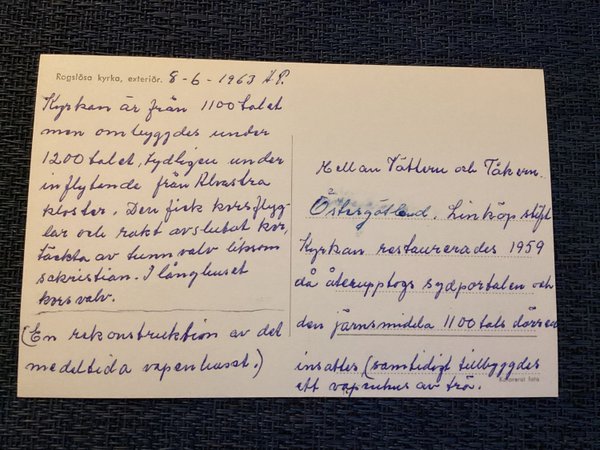 Rogslösa kyrka, exteriör. 8-6-1963 A.P.
Kyrkan är från 1100 talet
men ombyggdes under
1200 talet, tydligen under
inflytande från Alvastra
kloster. Den fick korsflyg-
lar och rakt avslutat kor,
täckta av tunnvalv liksom
sakristian. I långhuset
korsvalv.
(En rekonstruktion av det
medeltida vapenhuset.)
Mellan Vättern och Tåkern.
Östergötland. Linköp stift
Kyrkan restaurerades 1959
då återupptogs sydportalen och
den järnsmidda 1100 tals dörren
insattes, (samtidigt tillbyggdes
ett vapenhus av trä.
foto